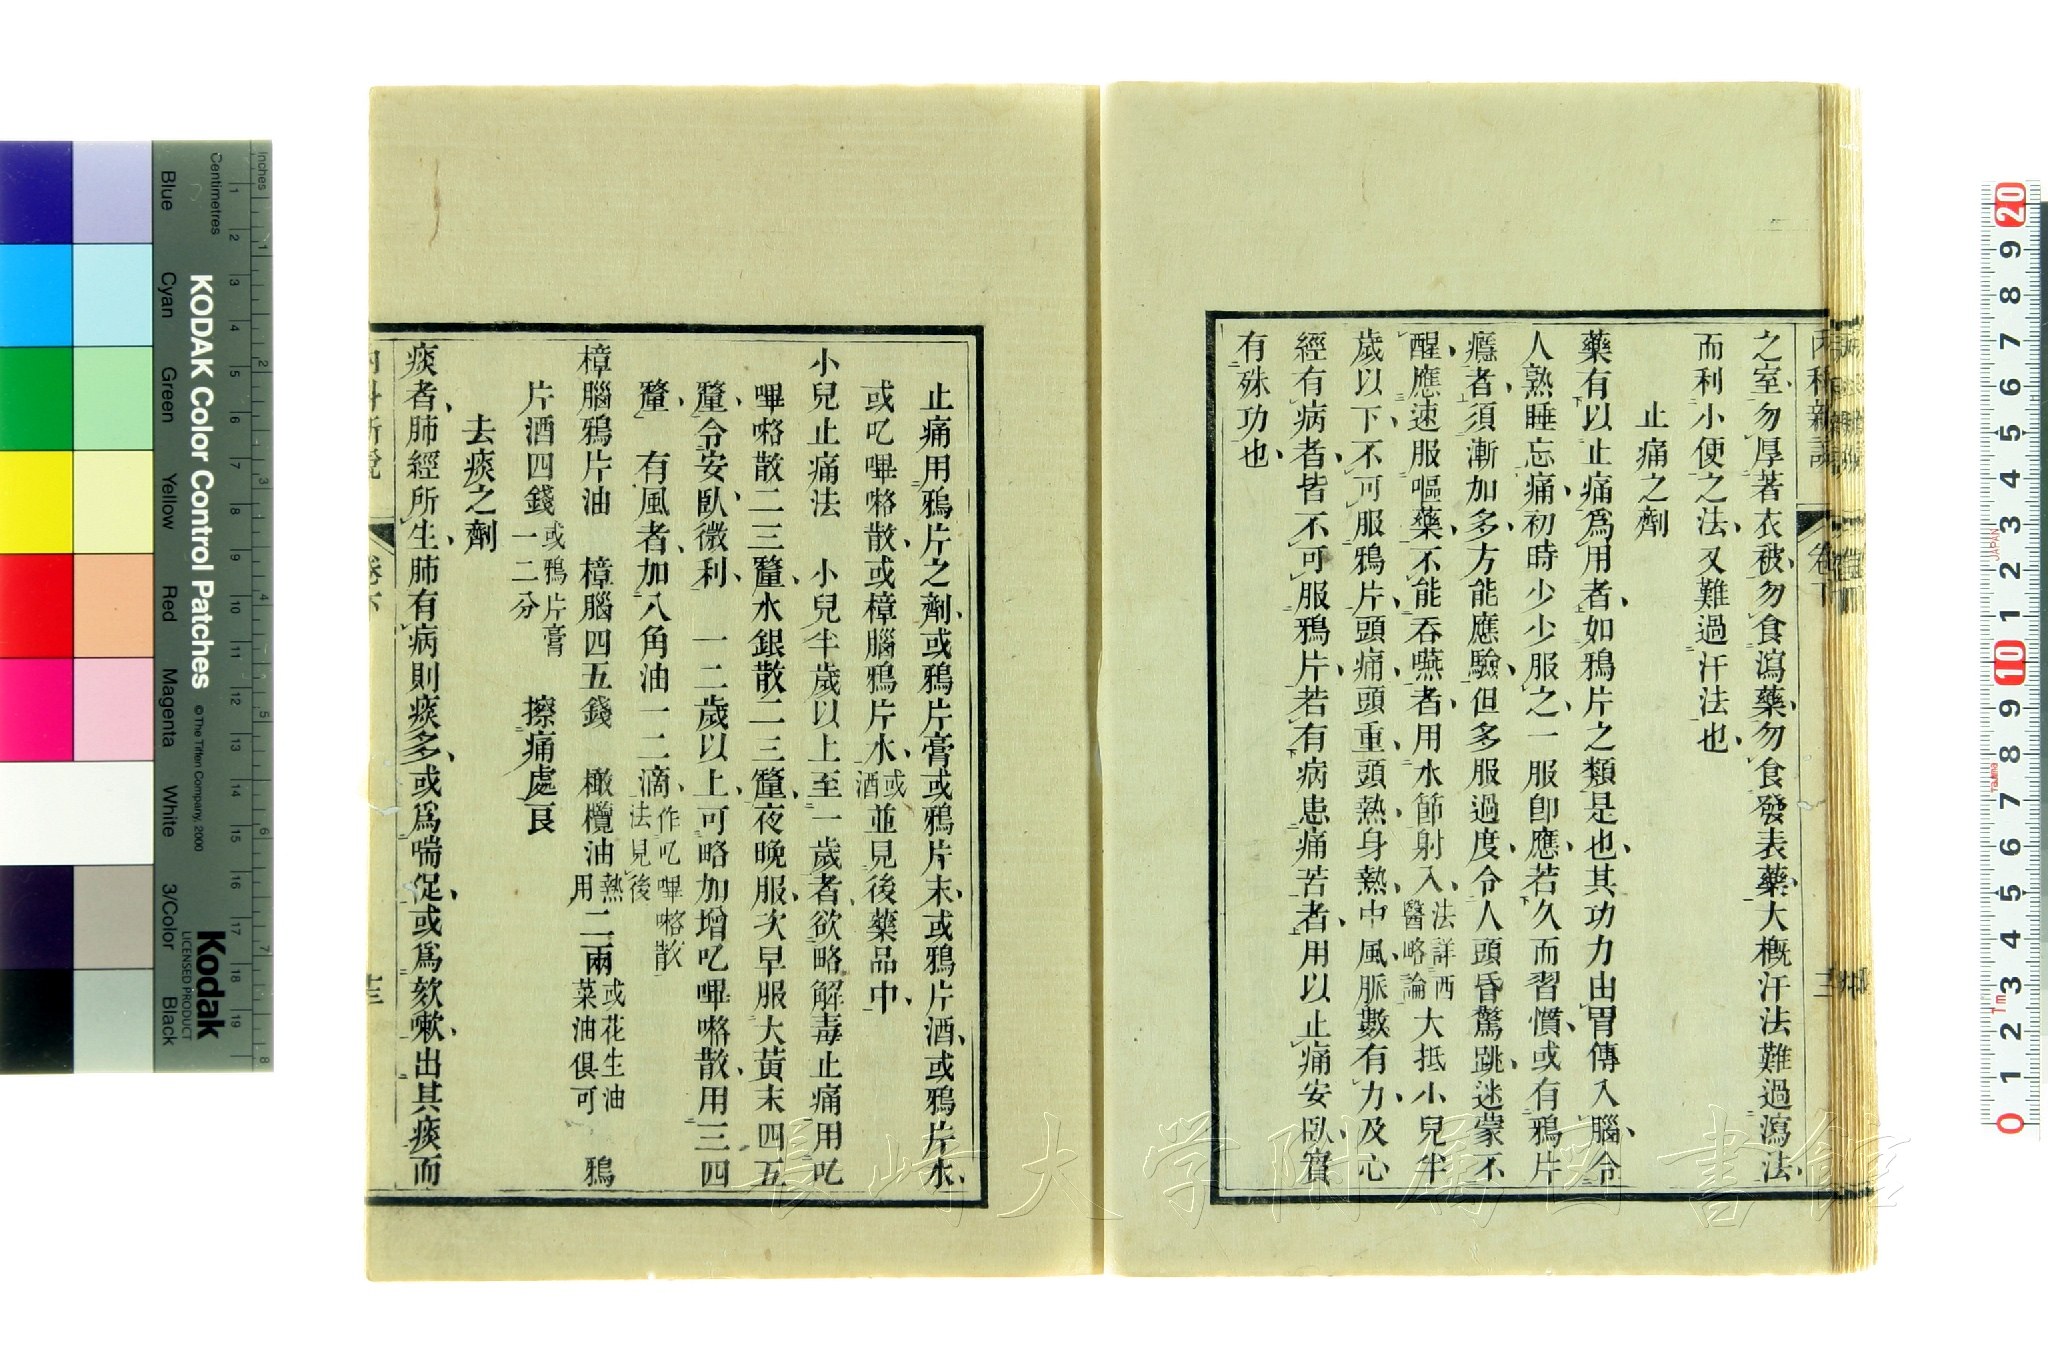 之室、勿厚著衣被、勿食瀉藥、勿食發表藥、大概汗法難過瀉法、
而利小便之法、又難過汗法也、
止痛之劑
藥有以止痛爲用者、如鴉片之類是也、其功力由胃傳入腦、令
人熟睡忘痛、初時少少服之、一服卽應、若久而習慣、或有鴉片
癮者、須漸加多、方能應驗、但多服過度、令人頭昏驚跳、迷蒙不
醒、應速服嘔藥、不能吞嚥者、用水節射入、法詳西醫略論大抵小兒半
歲以下、不可服鴉片、頭痛頭重、頭熱、身熱、中風、脈數有力、及心
經有病者、皆不可服鴉片、若有病患痛苦者、用以止痛安臥、實
有殊功也、
止痛用鴉片之劑、或鴉片膏或鴉片末、或鴉片酒、或鴉片水、
或叱嗶咯散、或樟腦鴉片水、或酒並見後藥品中、
小兒止痛法　小兒半歲以上至一歲者、欲略解毒止痛用叱
嗶咯散二三釐、水銀散二三釐、夜晚服、次早服大黃末四五
釐、令安臥、微利、一二歲以上、可略加增叱嗶咯散、用三四
釐、有風者、加八角油一二滴、作叱嗶咯散法見後
樟腦鴉片油　樟腦四五錢　橄欖油熟用二兩或花生油菜油俱可　鴉
片酒四錢或鴉片膏一二分　擦痛處良
去痰之劑
痰者、肺經所生、肺有病則痰多、或爲喘促、或爲欬嗽、出其痰而
內科新說　卷下
內科新說　卷下
長崎大学附属図書館
KODAK Color Control Patches
© The Tiffen Company, 2000
Kodak
LICENSED PRODUCT
Blue
Cyan
Green
Yellow
Red
Magenta
White
3/Color
Black
Inches
Centimetres
1 2 3 4 5 6 7 8
1 2 3 4 5 6 7 8 9 10 11 12 13 14 15 16 17 18 19
20 9 8 7 6 5 4 3 2 1 10 9 8 7 6 5 4 3 2 1 0
JAPAN